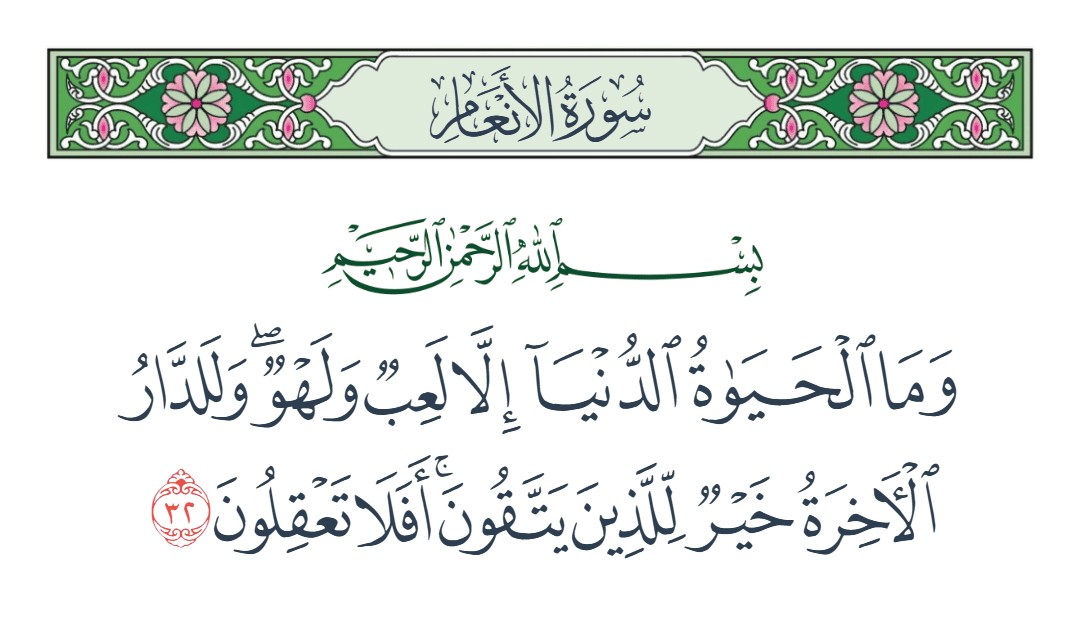 سُورَةُ الأَنْعَامِ
بِسْمِ ٱللَّهِ ٱلرَّحْمَٰنِ ٱلرَّحِيمِ
وَمَا ٱلْحَيَوٰةُ ٱلدُّنْيَآ إِلَّا لَعِبٌ وَلَهْوٌ ۖ وَلَلدَّارُ
ٱلْأَخِرَةُ خَيْرٌ لِّلَّذِينَ يَتَّقُونَ ۚ أَفَلَا تَعْقِلُونَ ٣٢